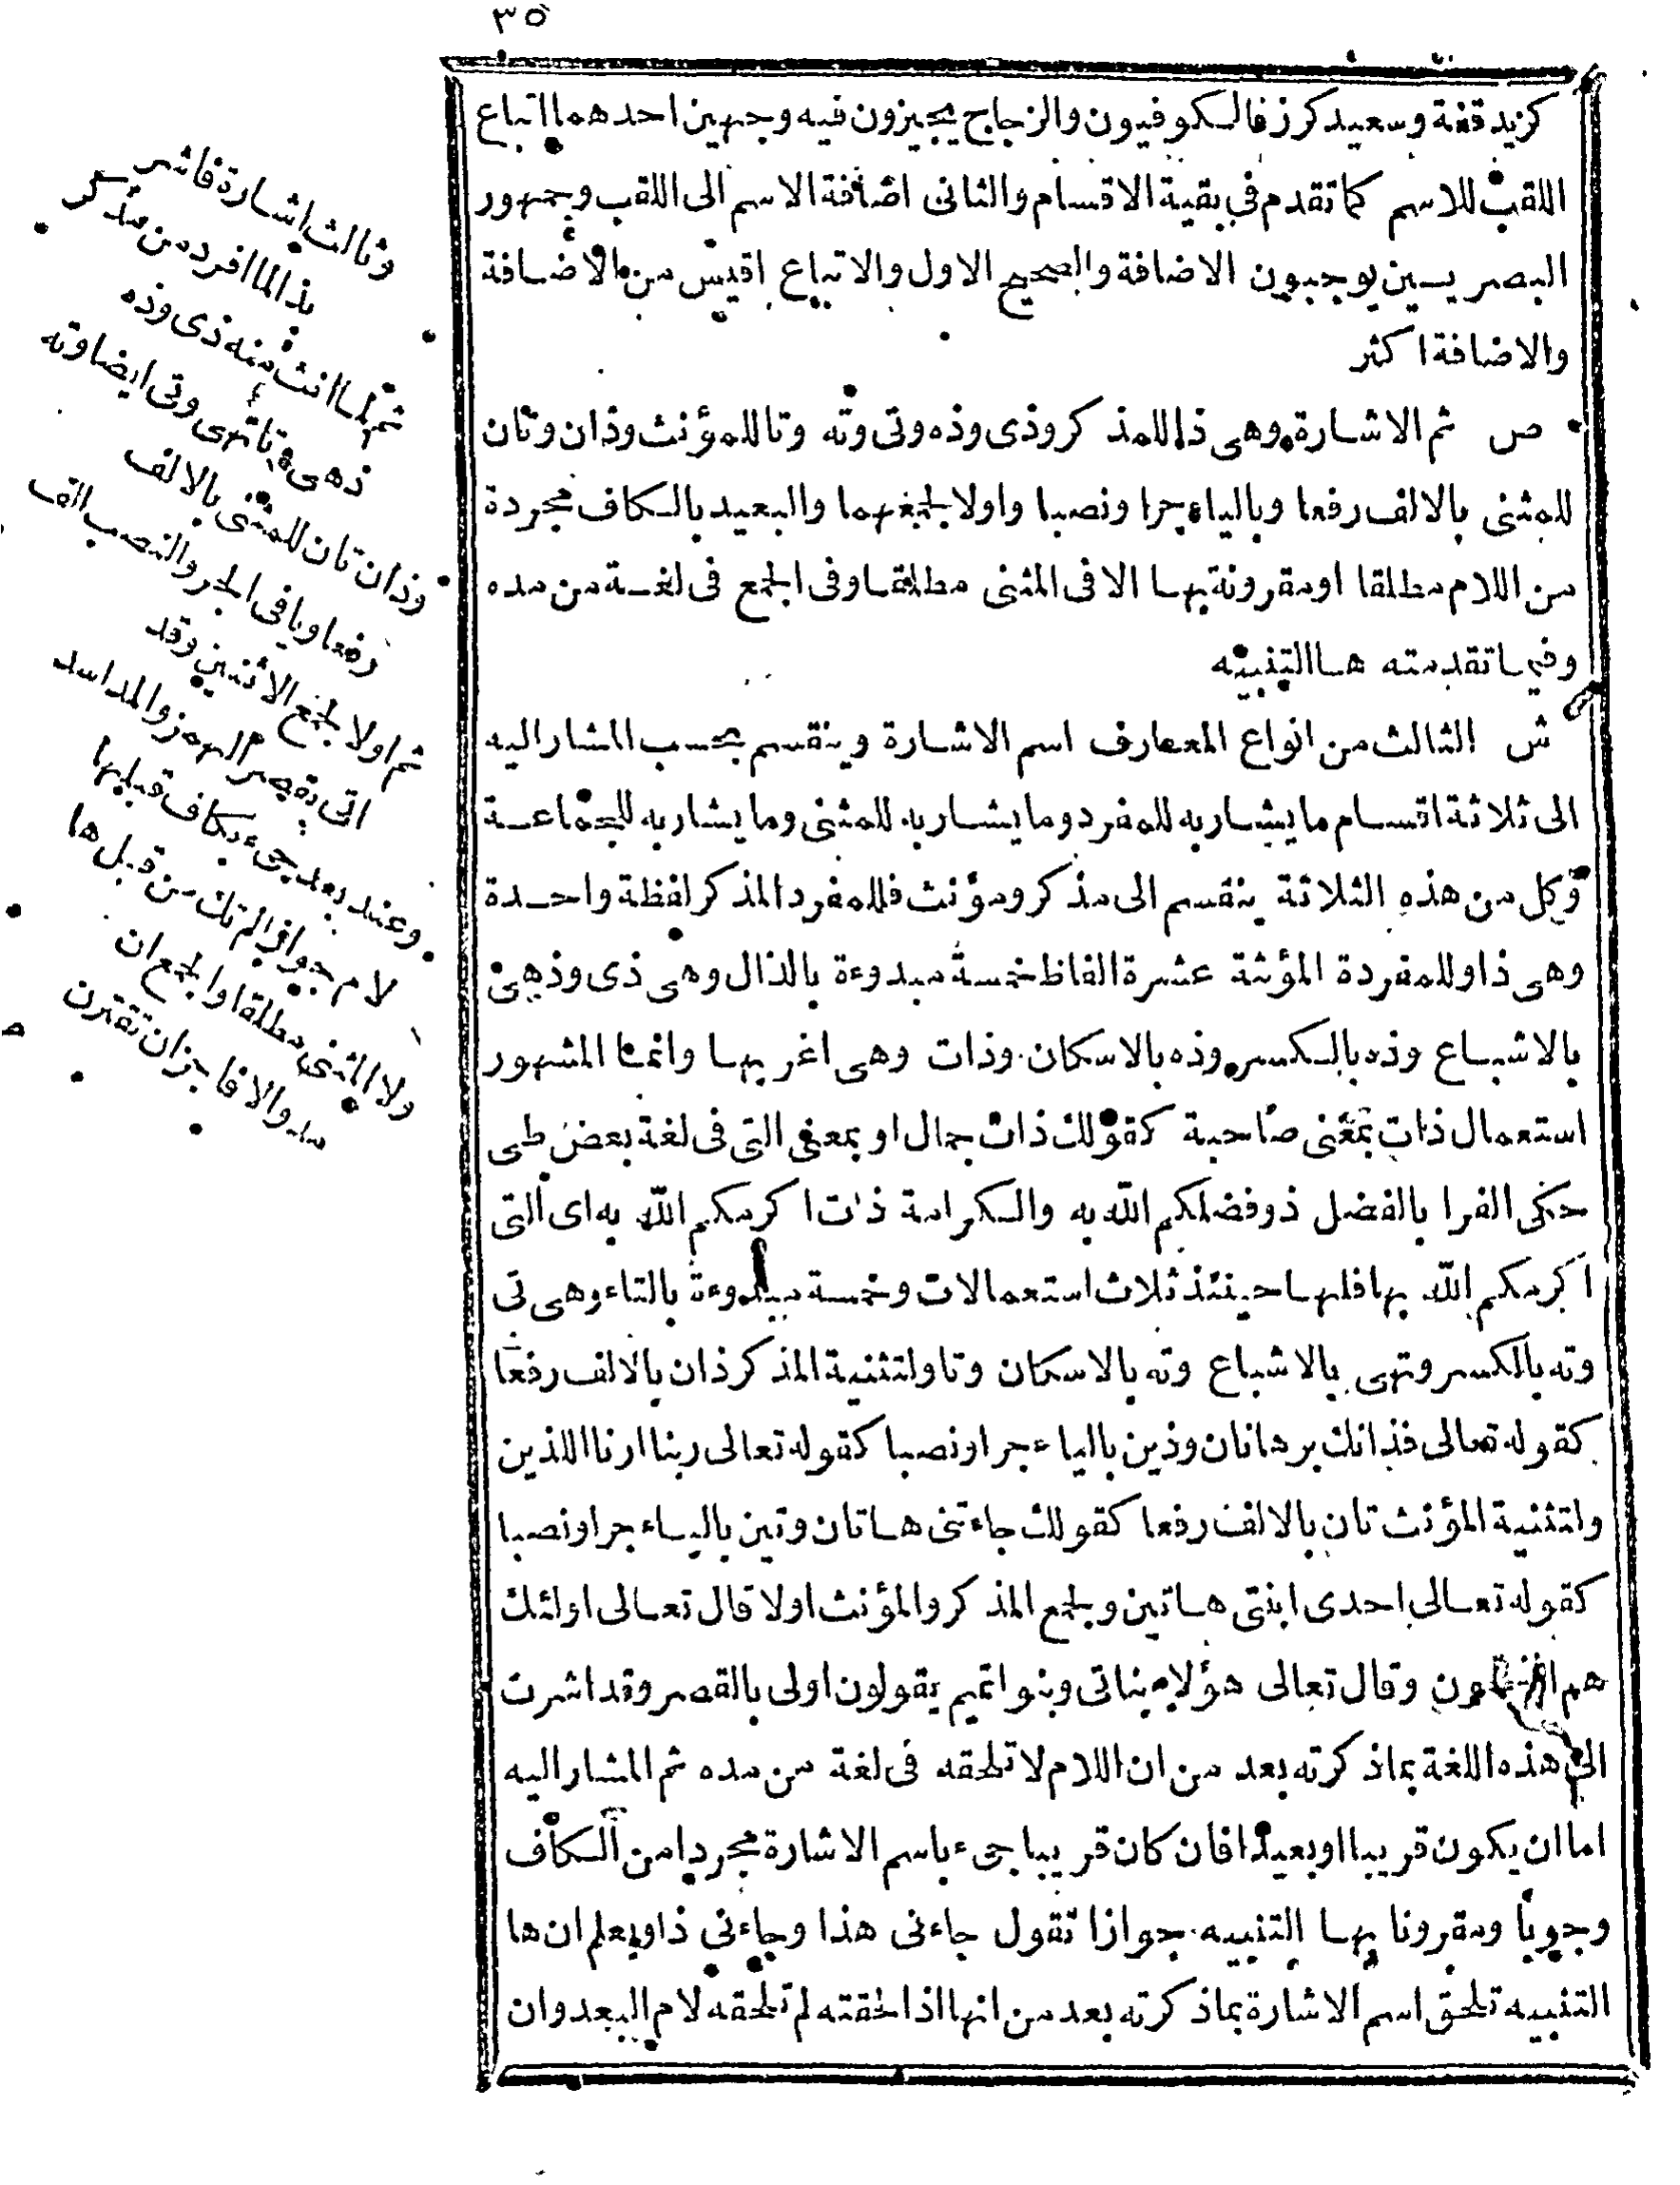 ٣٥
كزيد قفة وسعيد كرز فالكوفيون والزجاج يجيزون فيه وجهين احدهما اتباع
اللقب للاسم كما تقدم في بقية الاقسام والثانى اضافة الاسم الى اللقب وجمهور
البصريين يوجبون الاضافة والصحيح الاول والاتباع اقيس من الاضافة
والاضافة اكثر
ص ثم الاشارة وهى ذا للمذكر وذى وذه وتى وته وتا للمؤنث وذان وتان
للمثنى بالالف رفعا وبالياء جرا ونصبا واولا لجمعهما والبعيد بالكاف مجردة
من اللام مطلقا او مقرونة بها الا فى المثنى مطلقا وفى الجمع فى لغة من مده
وفيما تقدمته ها التنبيه
ش الثالث من انواع المعارف اسم الاشارة وينقسم بحسب المشار اليه
الى ثلاثة اقسام ما يشار به للمفرد وما يشار به للمثنى وما يشار به للجماعة
وكل من هذه الثلاثة ينقسم الى مذكر ومؤنث فللمفرد المذكر لفظة واحدة
وهى ذا وللمفردة المؤنثة عشرة الفاظ خمسة مبدوءة بالذال وهى ذى وذهى
بالاشباع وذه بالكسر وذه بالاسكان وذات وهى اغربها وانما المشهور
استعمال ذات بمعنى صاحبة كقولك ذات جمال او بمعنى التى فى لغة بعض طى
حكى الفرا بالفضل ذو فضلكم الله به والكرامة ذات اكرمكم الله به اى التى
اكرمكم الله بها فلها حينئذ ثلاث استعمالات وخمسة مبدوءة بالتاء وهى تى
وته بالكسر وتهى بالاشباع وته بالاسكان وتا ولتثنية المذكر ذان بالالف رفعا
كقوله تعالى فذانك برهانان وذين بالياء جرا ونصبا كقوله تعالى ربنا ارنا اللذين
ولتثنية المؤنث تان بالالف رفعا كقولك جاءتنى هاتان وتين بالياء جرا ونصبا
كقوله تعالى احدى ابنتى هاتين ولجمع المذكر والمؤنث اولا قال تعالى اولئك
هم المفلحون وقال تعالى هؤلاء بناتى وبنوا تميم يقولون اولى بالقصر وقد اشرت
الى هذه اللغة بما ذكرته بعد من ان اللام لا تلحقه فى لغة من مده ثم المشار اليه
اما ان يكون قريبا او بعيدا فان كان قريبا جىء باسم الاشارة مجردا من الكاف
وجوبا ومقرونا بها التنبيه جوازا تقول جاءنى هذا وجاءني ذا ويعلم ان ها
التنبيه تلحق اسم الاشارة بما ذكرته بعد من انها اذا لحقته لم تلحقه لام البعد وان
وثالث اشارة فاشر
بذا لما افرد من مذكر
ثم لما انث منه ذى وذه
ذهى وتا تهى وتى ايضا وته
وذان تان للمثنى بالالف
رفعا ويا فى الجر والنصب الف
ثم اولا لجمع الاثنين وقد
اتى بقصر الهمز والمد اسد
وعند بعد جىء بكاف قبلها
لام جوازا لم تك من قبل ها
ولا المثنى مطلقا والجمع ان
مد والا فاجز ان تقترن